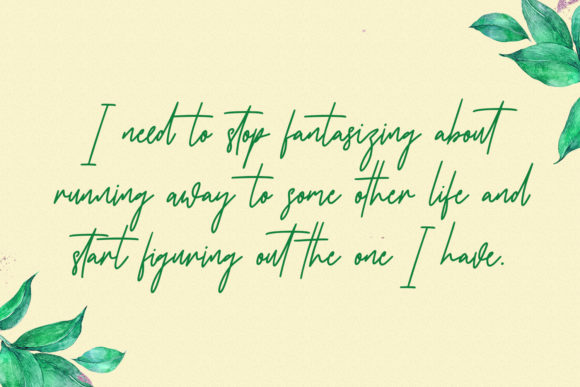 I need to stop fantasizing about
running away to some other life and
start figuring out the one I have.